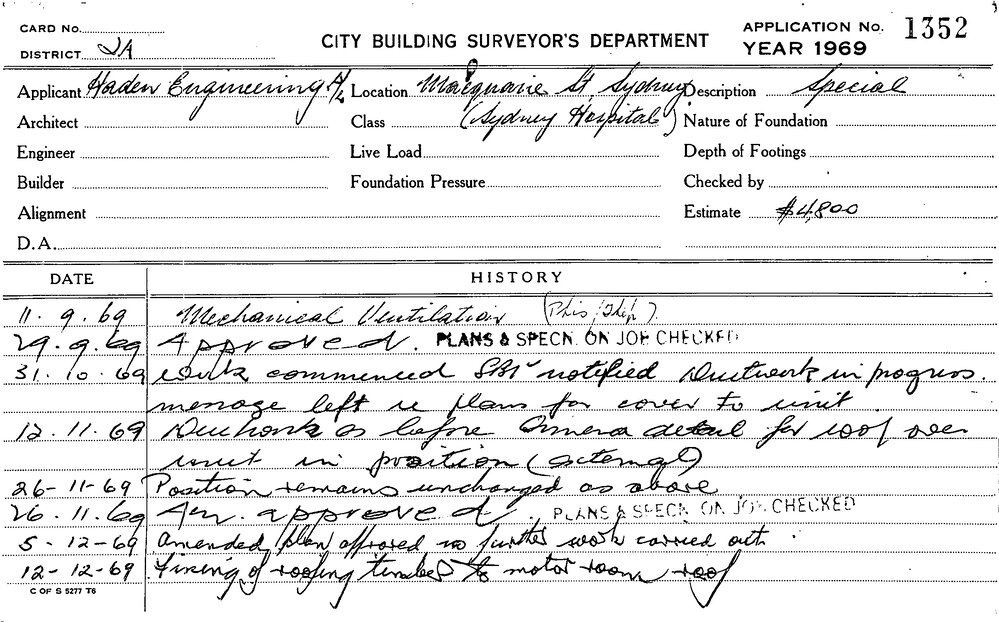 CARD No.
DISTRICT 2A
CITY BUILDING SURVEYOR'S DEPARTMENT
APPLICATION No. 1352
YEAR 1969
Applicant Haden Engineering P/L Location Macquarie St, Sydney Description Special
Architect Class (Sydney Hospital) Nature of Foundation
Engineer Live Load Depth of Footings
Builder Foundation Pressure Checked by
Alignment Estimate $4,800
D.A.
DATE HISTORY
11.9.69 Mechanical Ventilation
29.9.69 Approved. PLANS & SPECN. ON JOB CHECKED
31.10.69 Work commenced notified Ductwork in progress.
message left re plans for cover to unit
12.11.69 Ductwork as before detail for roof over
unit in position (external)
26-11-69 Position remains unchanged as above
26.11.69 Am. approved. PLANS & SPECN. ON JOB CHECKED
5-12-69 Amended plan approved no further work carried out.
12-12-69 Fixing of roofing timber to motor room roof
C OF S 5277 T6